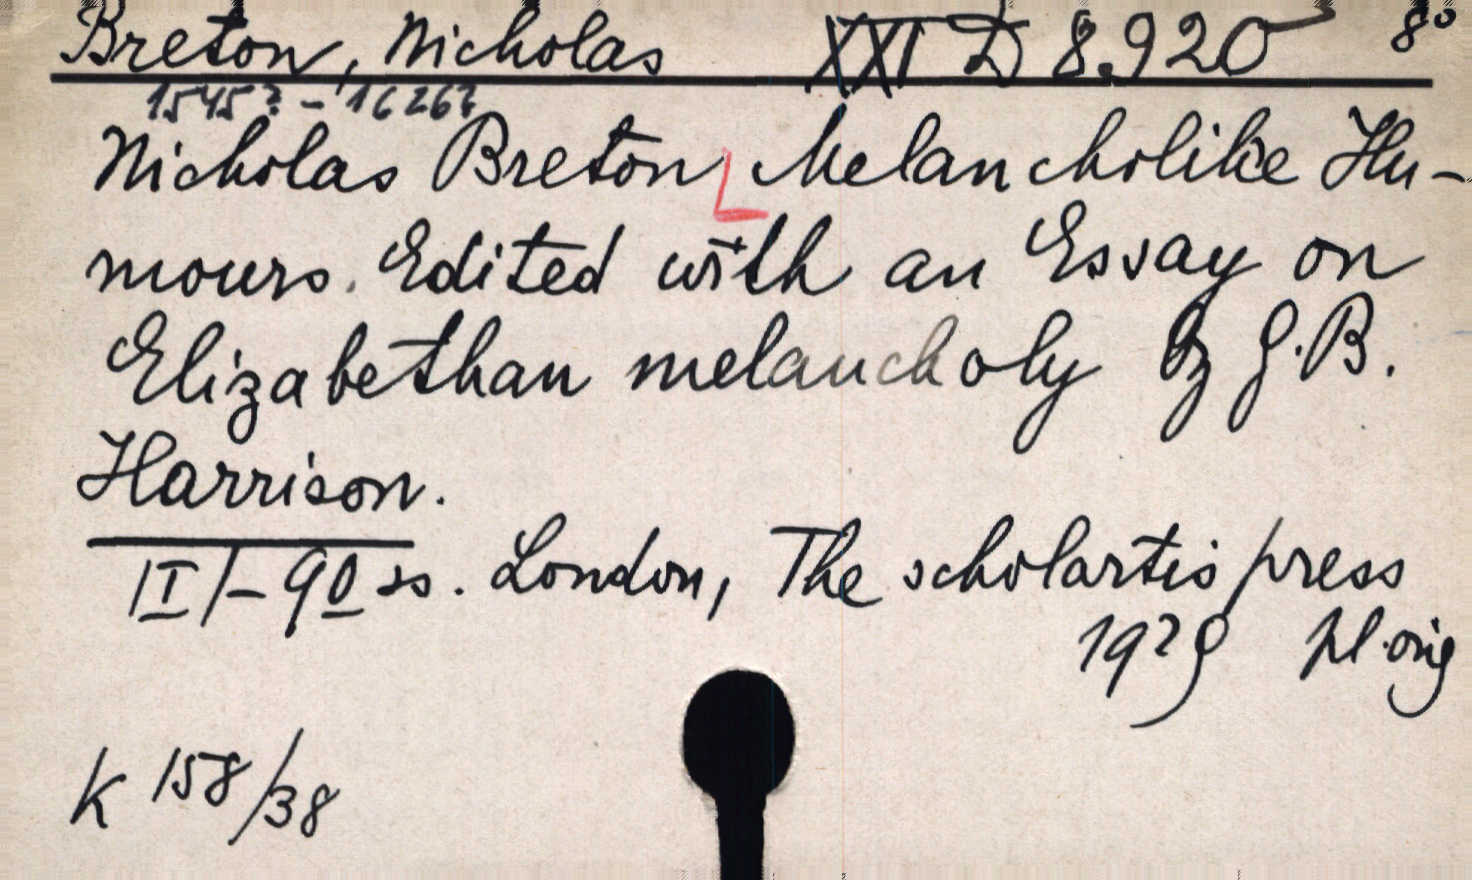 Breton, Nicholas XXI D 8.920 8°
1545? - 1626?
Nicholas Breton Melancholike Hu-
mours. Edited with an Essay on
Elizabethan melancholy by G.B.
Harrison.
|I|-90 ss. London, The scholartis press
1929 pl. orig
K 158/38